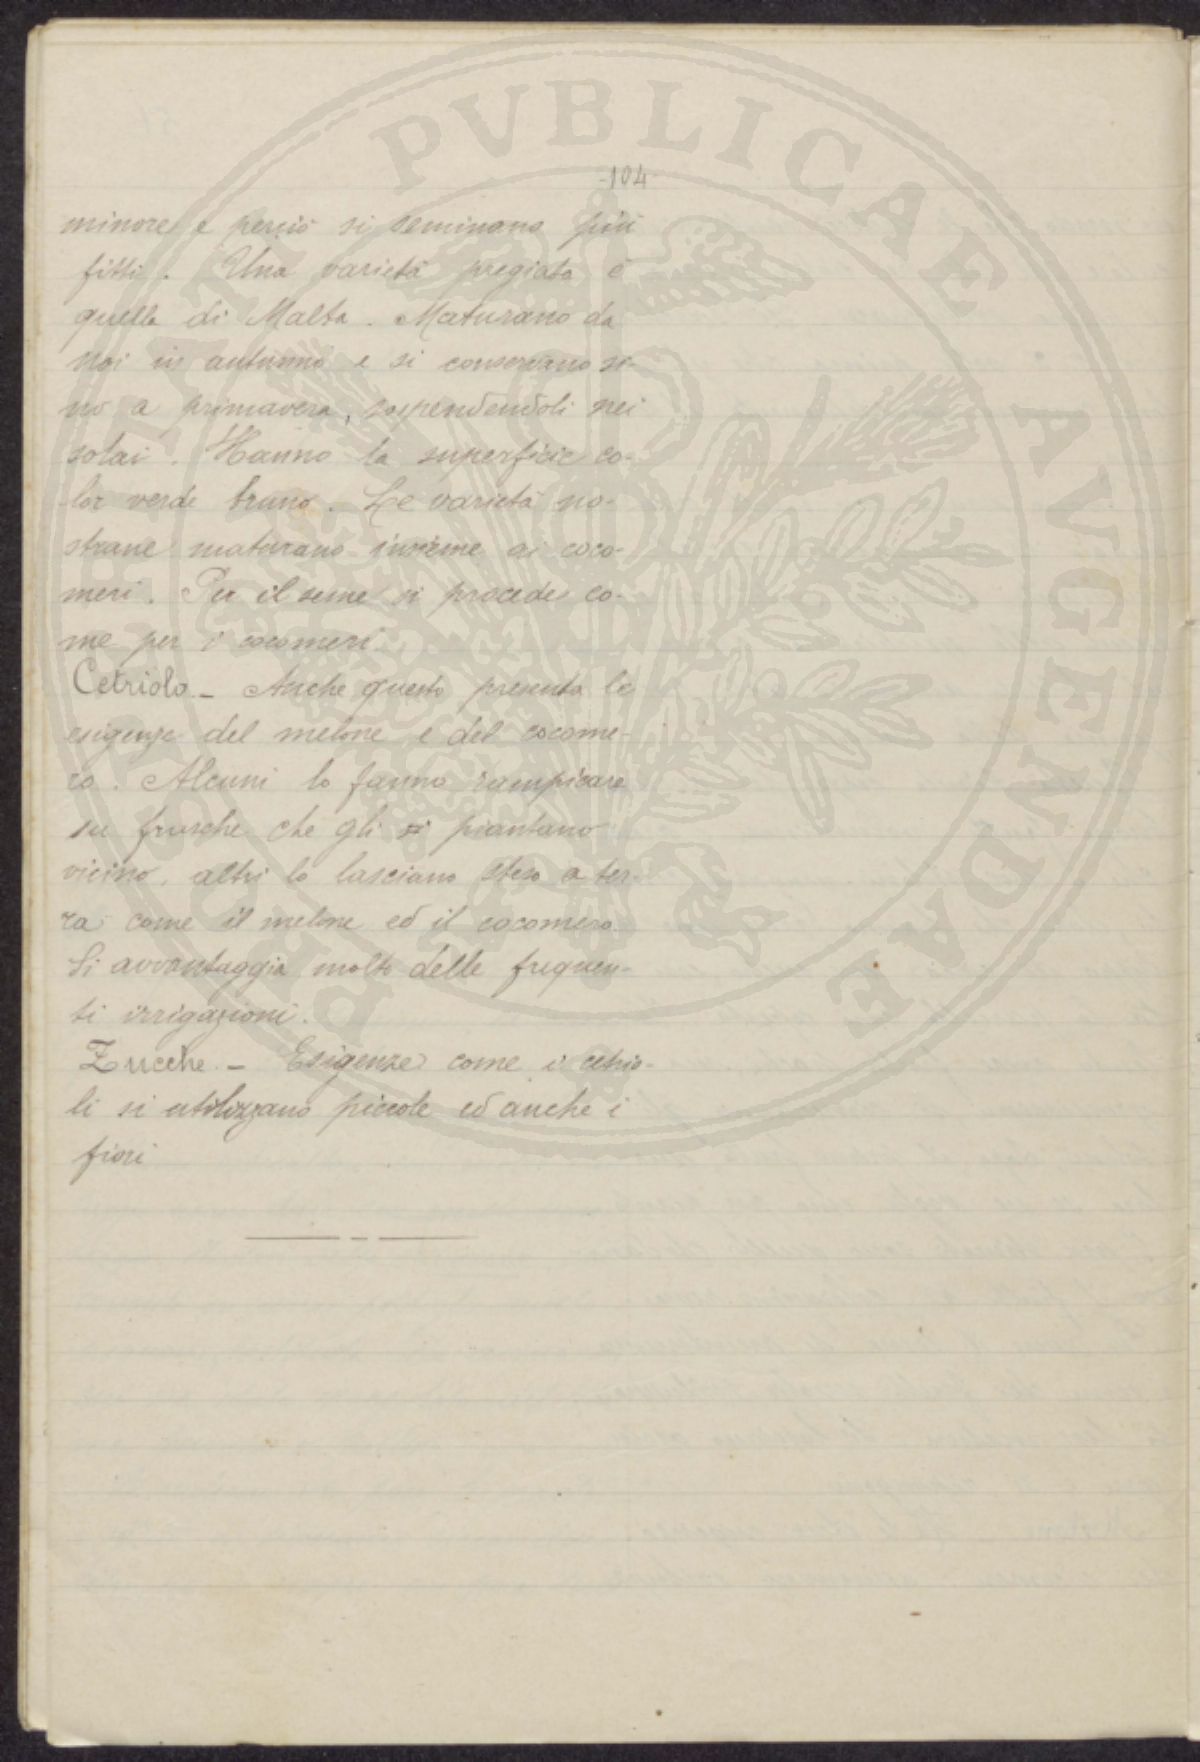 -104-
minore e perciò si seminano più
fitti. Una varietà pregiata è
quella di Malta. Maturano da
noi in autunno e si conservano si-
no a primavera, sospendendoli nei
solai. Hanno la superficie co-
lor verde bruno. Le varietà no-
strane maturano insieme ai coco-
meri. Per il seme si procede co-
me per i cocomeri.
Cetriolo - Anche questo presenta le
esigenze del melone e del cocome-
ro. Alcuni lo fanno rampicare
su frasche che gli si piantano
vicino, altri lo lasciano steso a ter-
ra come il melone ed il cocomero
Si avvantaggia molto delle frequen-
ti irrigazioni.
Zucche - Esigenze come i cetrio-
li si utilizzano piccole ed anche i
fiori
PVBLICAE AVGENDAE